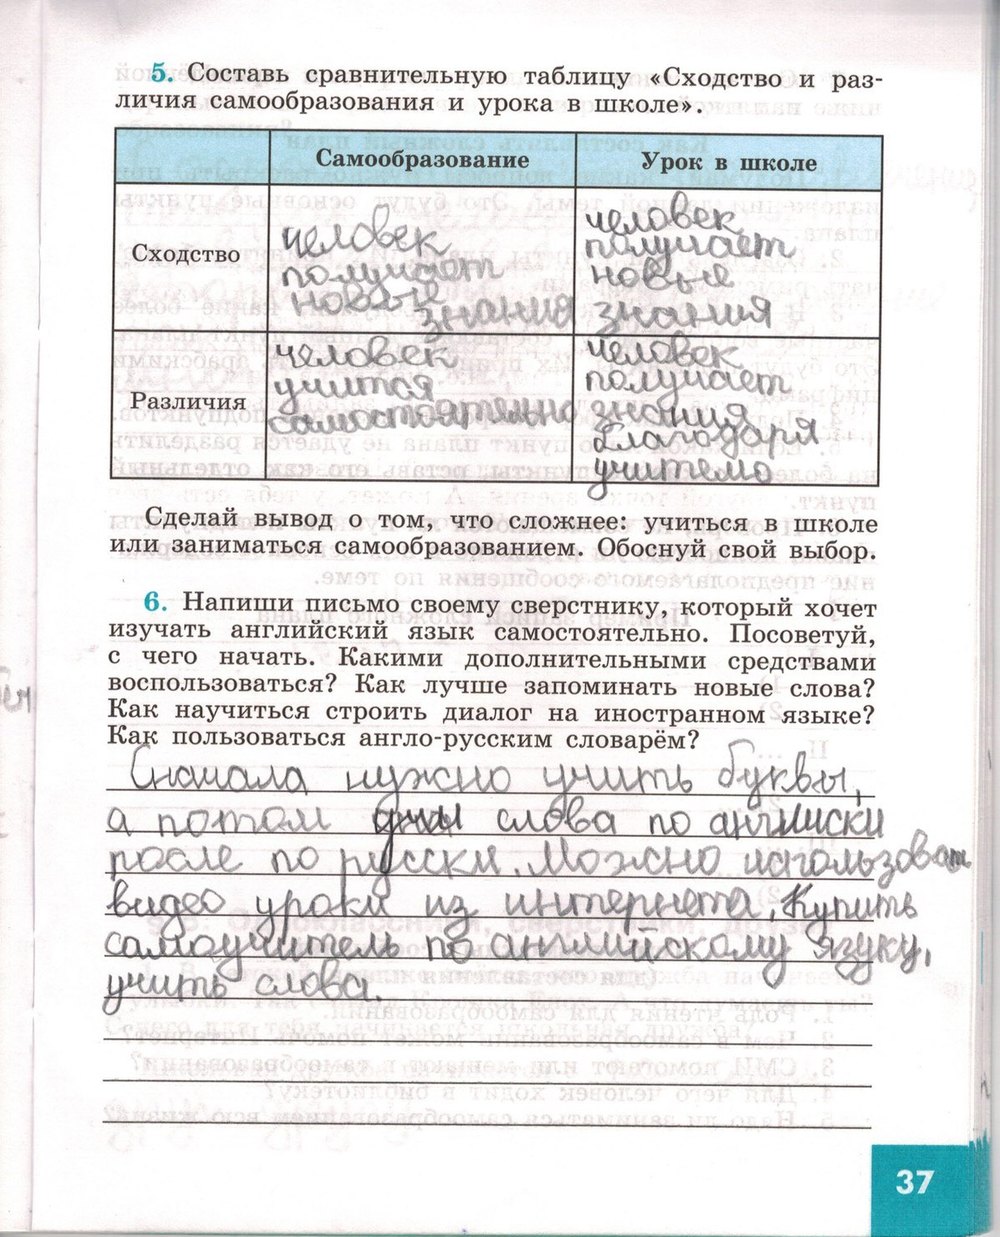 5. Составь сравнительную таблицу «Сходство и раз-
личия самообразования и урока в школе».
Самообразование
Урок в школе
Сходство
человек
получает
новые
знания
человек
получает
новые
знания
Различия
человек
учится
самостоятельно
человек
получает
знания
благодаря
учителю
Сделай вывод о том, что сложнее: учиться в школе
или заниматься самообразованием. Обоснуй свой выбор.
6. Напиши письмо своему сверстнику, который хочет
изучать английский язык самостоятельно. Посоветуй,
с чего начать. Какими дополнительными средствами
воспользоваться? Как лучше запоминать новые слова?
Как научиться строить диалог на иностранном языке?
Как пользоваться англо-русским словарём?
Сначала нужно учить буквы,
а потом слова по английски
после по русски. Можно использоват
видео уроки из интернета, Купить
самоучитель по английскому языку,
учить слова.
37